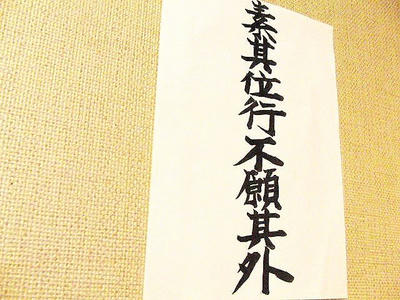 素其位行不願其外